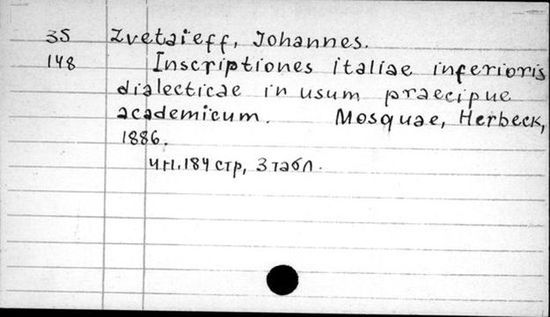 35 Zvetaieff, Johannes.
148 Inscriptiones italiae inferioris
dialecticae in usum praecipue
academicum. Mosquae, Herbeck,
1886.
184 стр, 3 табл.